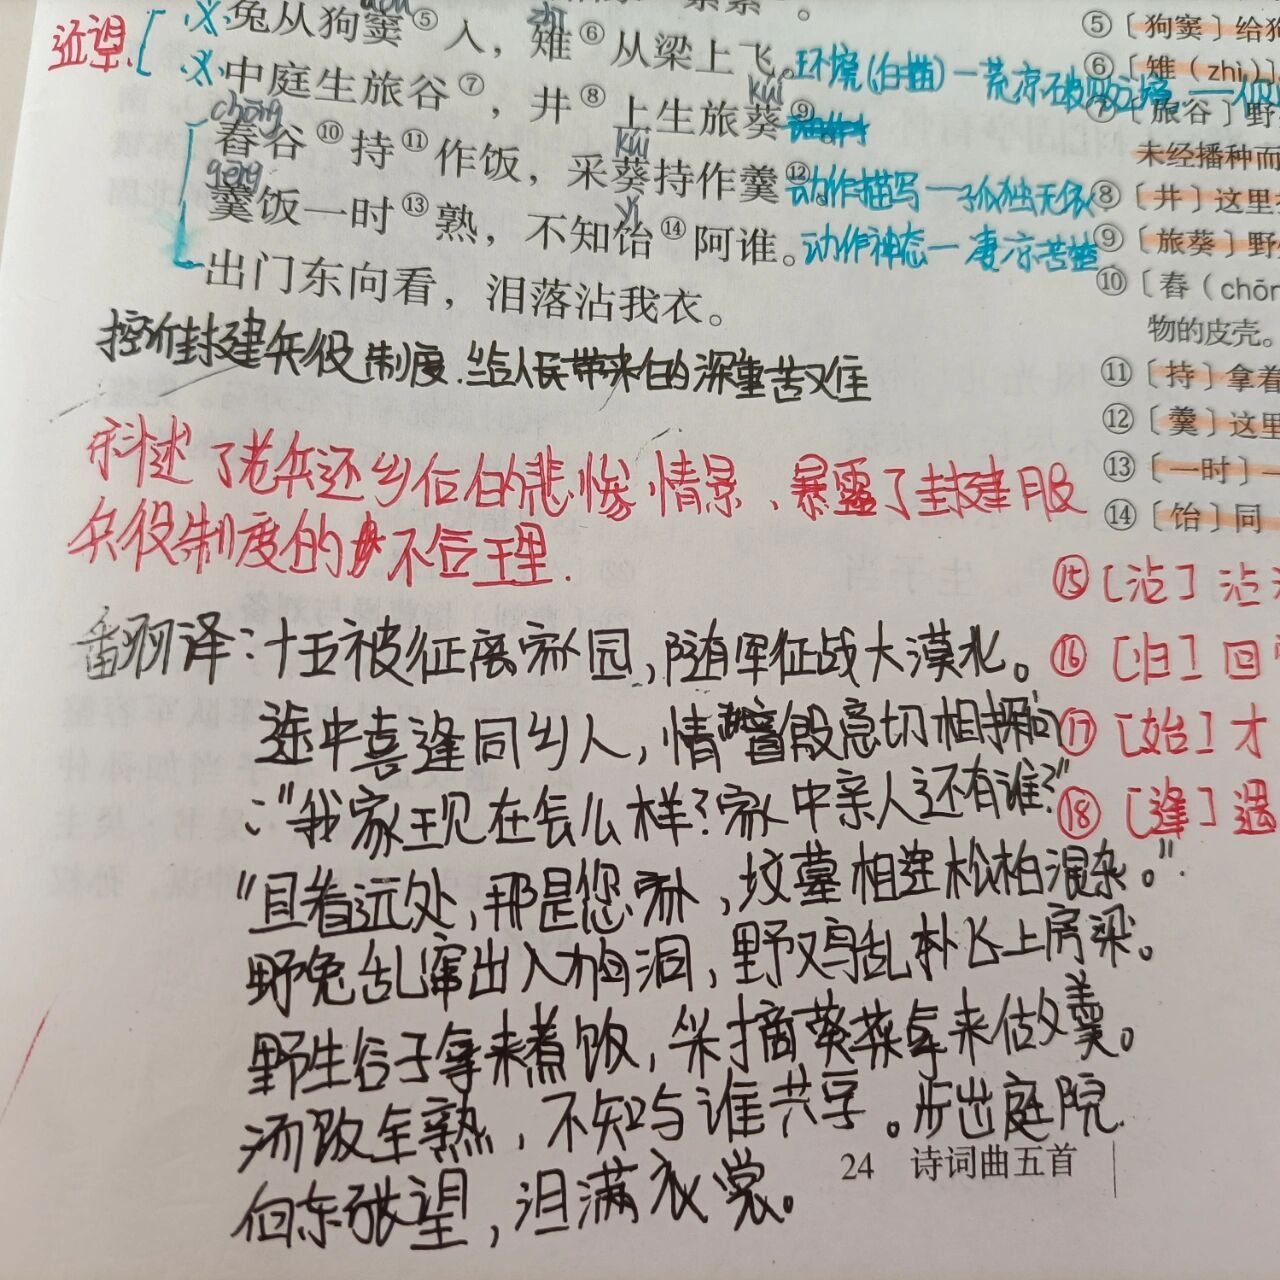 近望
兔从狗窦⑤入，雉⑥从梁上飞。
环境(白描)—荒凉破败之境.
中庭生旅谷⑦，井⑧上生旅葵⑨
chōng
kuí
舂谷⑩持⑪作饭，采葵持作羹⑫
kuí
动作描写—孤独无依
gēng
yí
羹饭一时⑬熟，不知饴⑭阿谁。
动作神态—凄凉苦楚
出门东向看，泪落沾我衣。
⑤〔狗窦〕给狗
⑥〔雉（zhì）〕
⑦〔旅谷〕野
未经播种而
⑧〔井〕这里
⑨〔旅葵〕野
⑩〔舂（chōn
物的皮壳。
⑪〔持〕拿着
⑫〔羹〕这里
⑬〔一时〕一
⑭〔饴〕同
⑮[沾]沾
⑯[归]回
⑰[始]才
⑱[逢]遇
控诉封建兵役制度.给人民带来的深重苦难
叙述了老兵还乡后的悲惨情景、暴露了封建服
兵役制度的不合理.
翻译:十五被征离家园,随军征战大漠北。
途中喜逢同乡人,情意殷急切相探问
:"我家现在怎么样?家中亲人还有谁?"
"且看远处,那是您家,坟墓相连松柏混杂。"
野兔乱窜出入狗洞,野鸡乱扑飞上房梁。
野生谷子拿来煮饭,采摘葵菜拿来做羹。
汤饭全熟,不知与谁共享。步出庭院
向东张望,泪满衣裳。
24 诗词曲五首